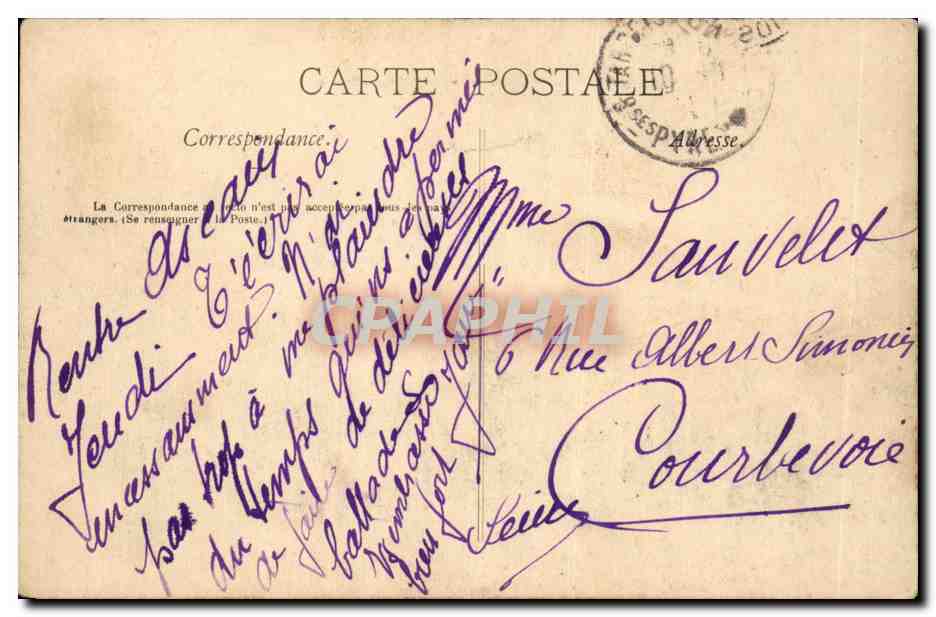 CARTE POSTALE
Correspondance.
Adresse.
La Correspondance au recto n'est pas acceptée par tous les pays
étrangers. (Se renseigner à la Poste.)
Rentre
Jeudi T'écrirai
incessamment. N'ai
pas trop à me plaindre
du temps qui m'a permis
de faire de délicieuses
ballades
T'embrasse
bien fort
Mme Sauvelet
6 Rue Albert Simonin
Courbevoie
Seine
CRAPHIL